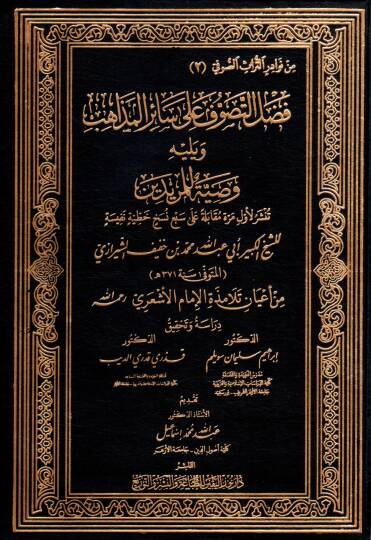 من نوادر التراث الصوفي (٢)
فضل التصوف على سائر المذاهب
ويليه
وصية المريدين
تنشر لأول مرة مقابلة على سبع نسخ خطية نفيسة
للشيخ الكبير أبي عبد الله محمد بن خفيف الشيرازي
(المتوفى سنة ٣٧١هـ)
من أعيان تلامذة الإمام الأشعري رحمه الله
دراسة وتحقيق
الدكتور الدكتور
إبراهيم سليمان سويلم قذري قدري الديب
تقديم
الأستاذ الدكتور
عبد الله محمد إسماعيل
كلية أصول الدين - جامعة الأزهر
الناشر